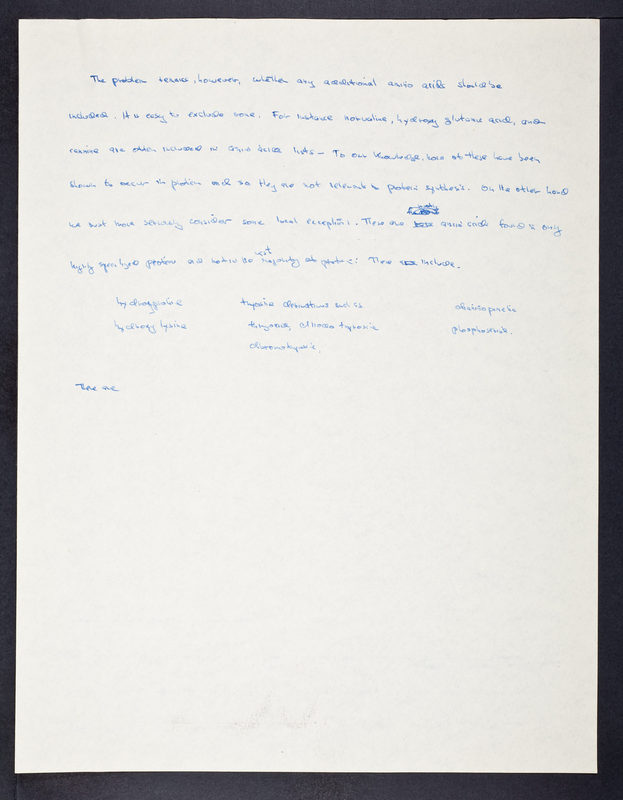 The problem remains, however, whether any additional amino acids should be
included. It is easy to exclude some. For instance norvaline, hydroxy glutamic acid, and
canine are often included in amino acids lists – To our knowledge, none of these have been
shown to occur in protein and so they are not relevant to protein synthesis. On the other hand
we must more seriously consider some local exceptions. There are amino acids found in only
highly specialized proteins and not in the vast majority of proteins: These include.
hydroxyproline tyrosine derivatives such as diaminopimelic
hydroxy lysine thyroxine, dibromotyrosine phosphoserine.
dibromotyrosine.
There are